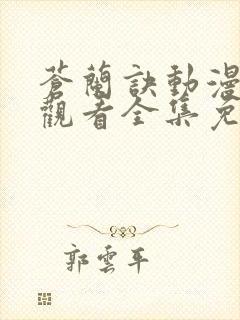 蒼蘭訣動漫
觀看全集免
郭雲平